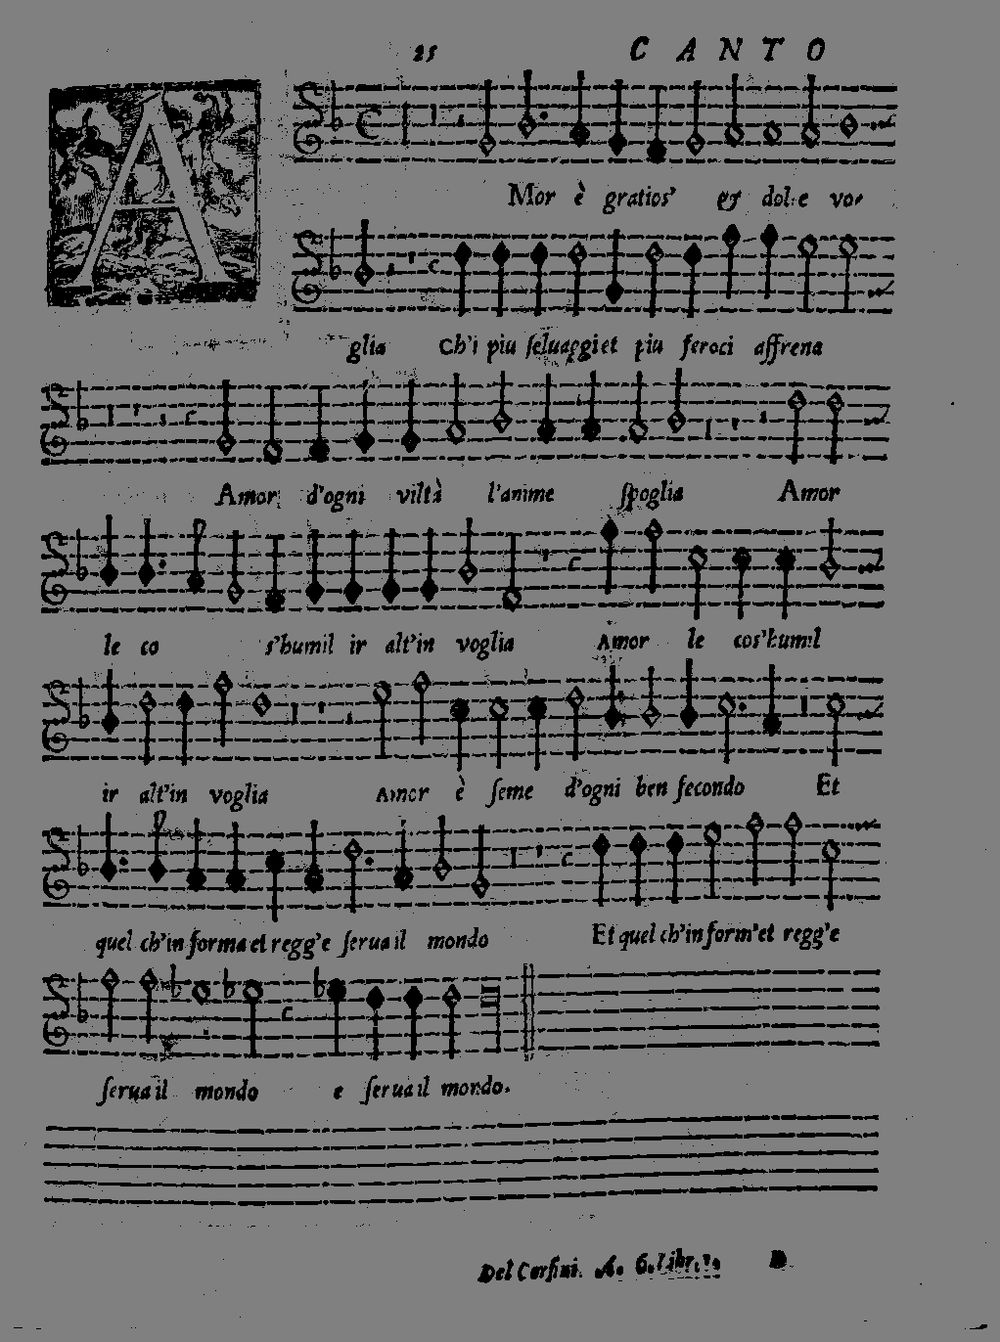 25 CANTO
AMor è gratios' et dolce vo-
glia Ch'i piu seluaggi et piu feroci affrena
Amor d'ogni viltà l'anime spoglia Amor
le co s'humil ir alt'in voglia Amor le cos'humil
ir alt'in voglia Amor è seme d'ogni ben fecondo Et
quel ch'in forma et regg'e serua il mondo Et quel ch'in form'et regg'e
serua il mondo e serua il mondo.
Del Corfini. A. 6. Libr. D